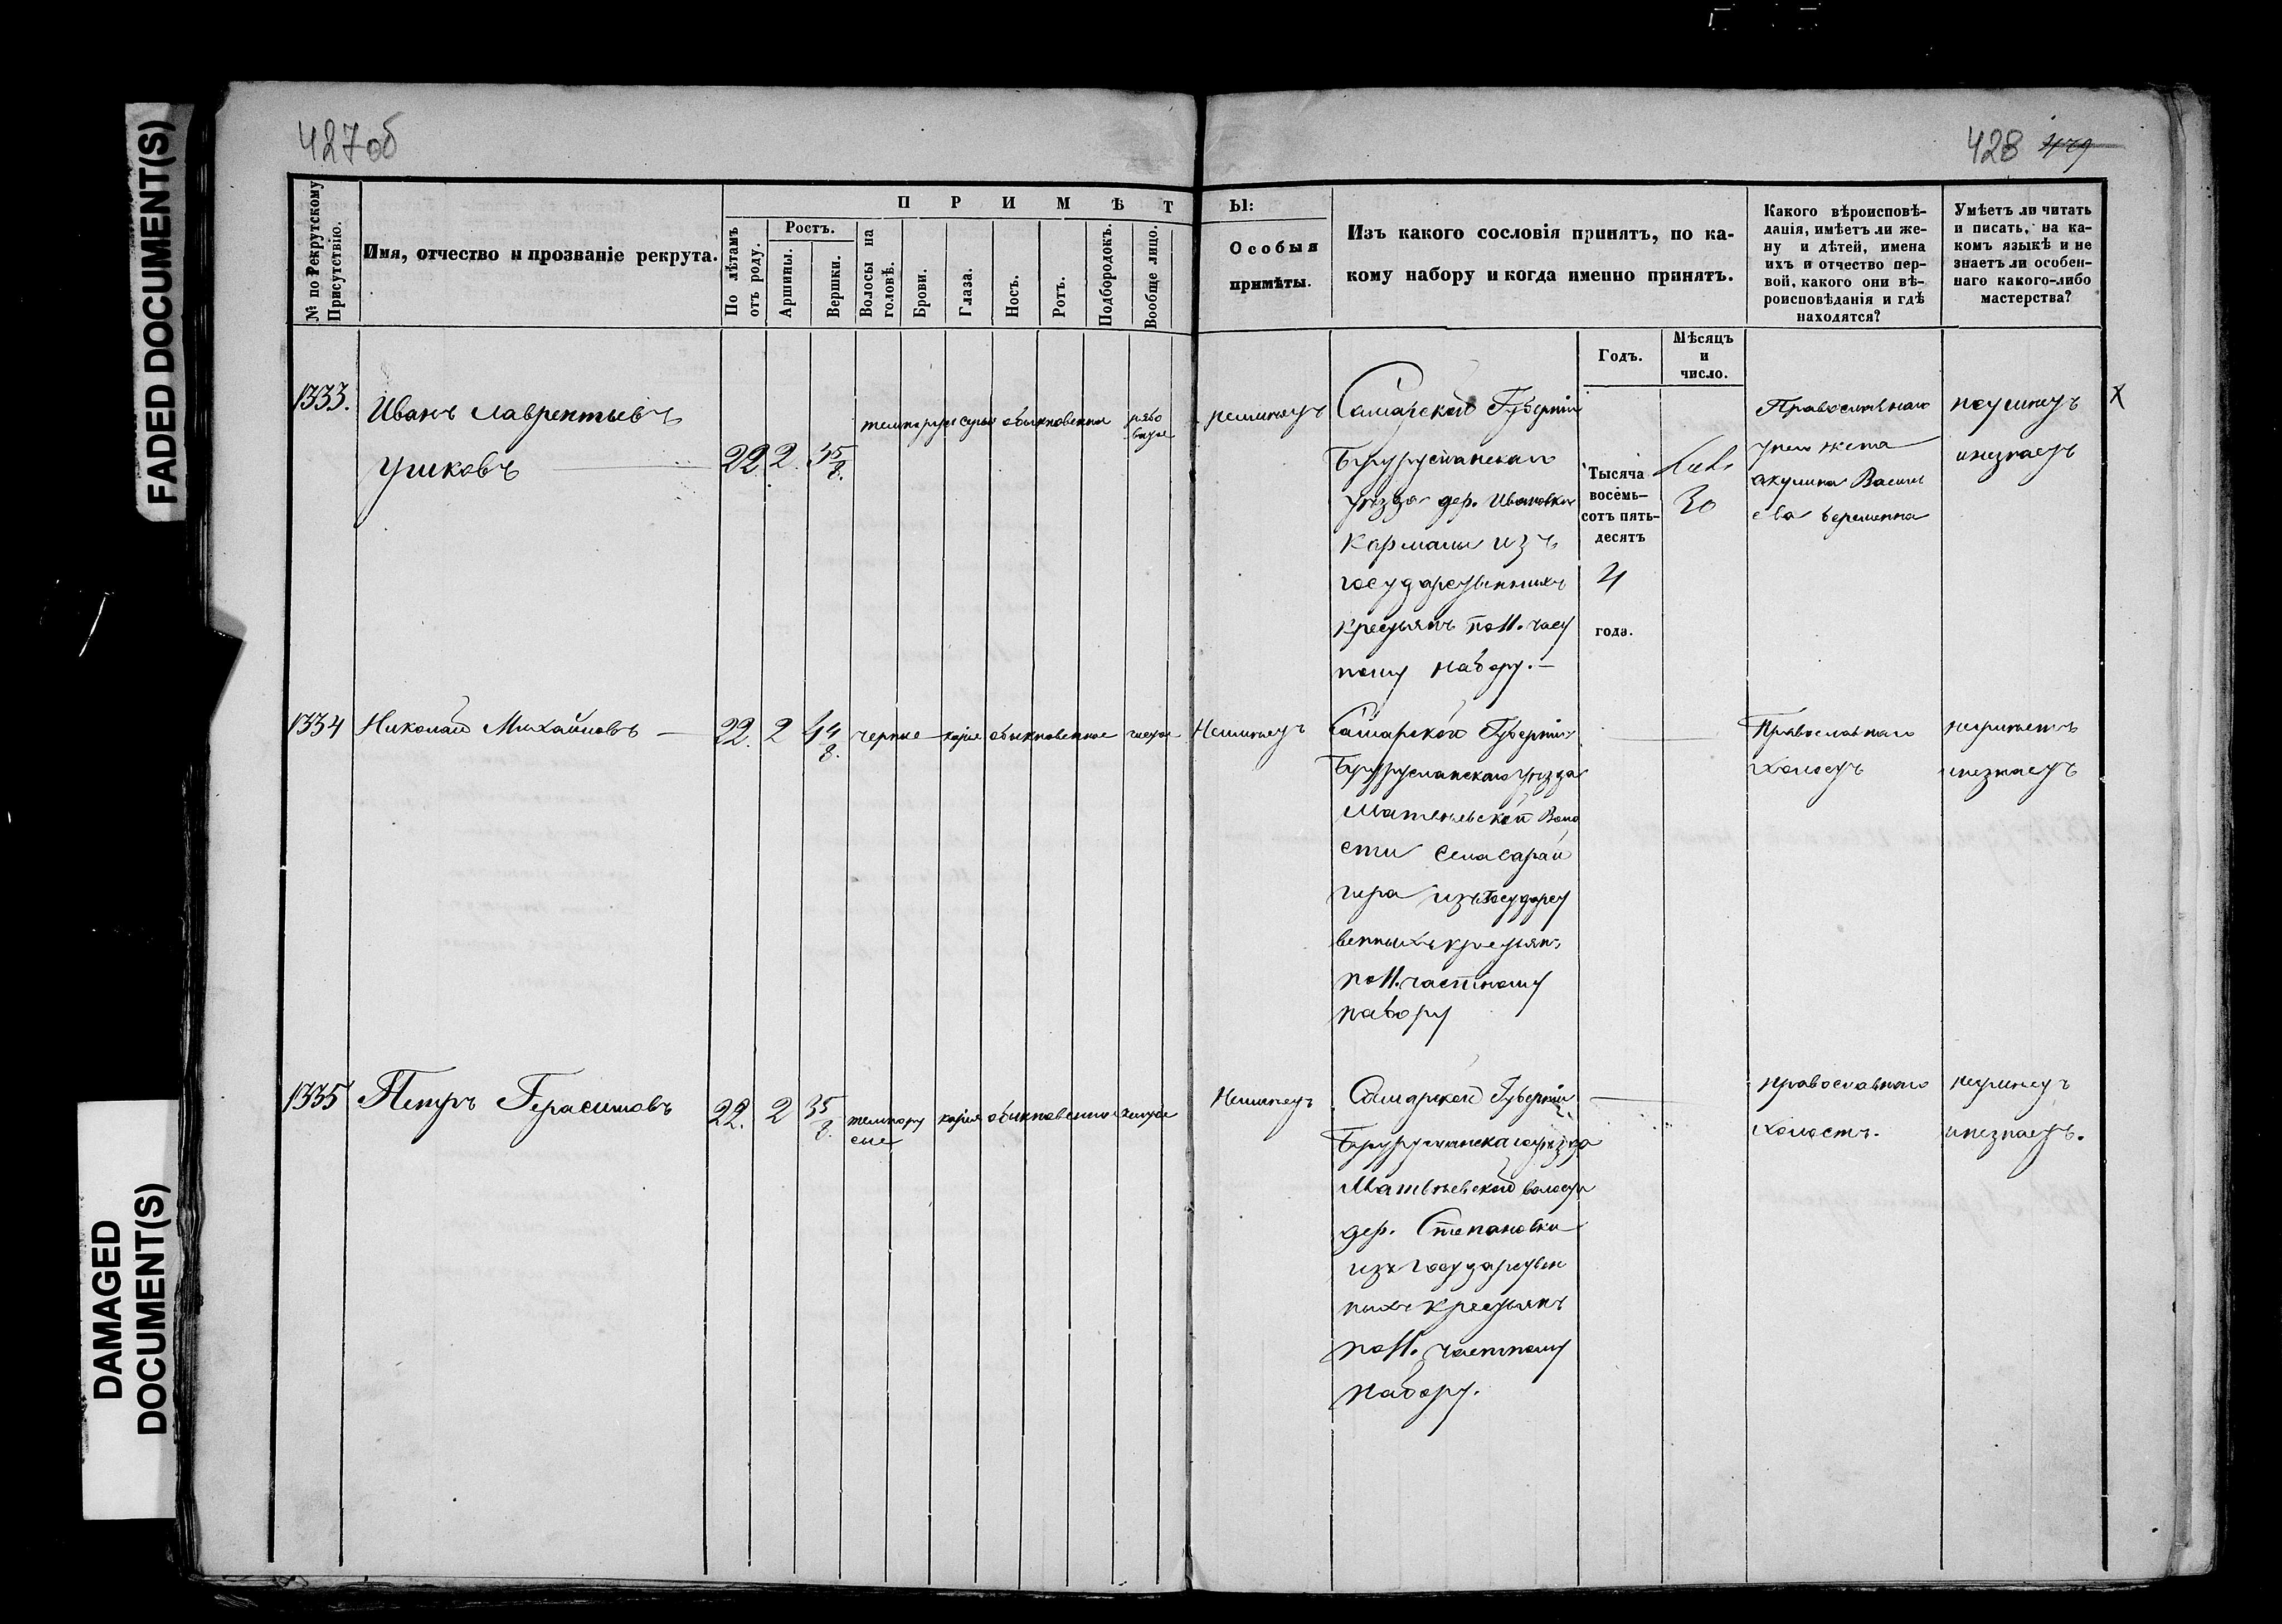 427об
428 429
FADED DOCUMENT(S)
DAMAGED
DOCUMENT(S)
№ по Рекрутскому
Присутствію.
Имя, отчество и прозваніе рекрута.
ПРИМѢТ
Ы:
По лѣтамъ
отъ роду.
Ростъ.
Аршины.
Вершки.
Волосы на
головѣ.
Брови.
Глаза.
Носъ.
Ротъ.
Подбородокъ.
Вообще лицо.
Особыя
примѣты.
Изъ какого сословія принятъ, по ка-
кому набору и когда именно принятъ.
Годъ.
Мѣсяцъ
и
число.
Какого вѣроисповѣ-
данія, имѣетъ ли же-
ну и дѣтей, имена
ихъ и отчество пер-
вой, какого они вѣ-
роисповѣданія и гдѣ
находятся?
Умѣетъ ли читать
и писать, на ка-
комъ языкѣ и не
знаетъ ли особен-
наго какого-либо
мастерства?
1333.
Иванъ Лаврентьевъ
Ушковъ
22 2. 3 5/8.
темнорусы серые обыкновенные
рябо
ватое
неимеетъ
Самарской Губерніи
Бугурусланскаго
уѣзда дер. Ивановки
Кармалы изъ
государственныхъ
крестьянъ по 11. част
ному набору.
Тысяча
восемь-
сотъ пять-
десятъ
4
года.
30
Православнаго
у него жена
акулина Василь
ева беременна
неумеетъ
инезнаетъ
X
1334
Николай Михайловъ
22. 2 4 4/8.
черные карие обыкновенное чистое
Неимеетъ
Самарской Губерніи
Бугурусланскаго уѣзда
Матвѣевской Воло
сти Села Сарай
гира изъ Государст
венныхъ крестьянъ
по 11. частному
набору
Православнаго
Холостъ
неумеетъ
инезнаетъ
1335
Петръ Герасимовъ
22. 2 3 5/8.
темнору
сые
карие обыкновенное чистое
Неимеетъ
Самарской Губерніи
Бугурусланскаго уѣзда
Матвѣевской волости
дер. Степановки
изъ государствен
ныхъ крестьянъ
по 11. частному
набору.
православнаго
холостъ.
неумеетъ
инезнаетъ.